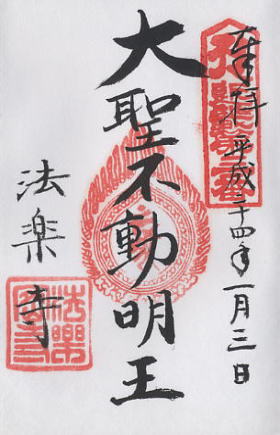 奉拝 平成二十四年一月三日
大聖不動明王
法楽寺